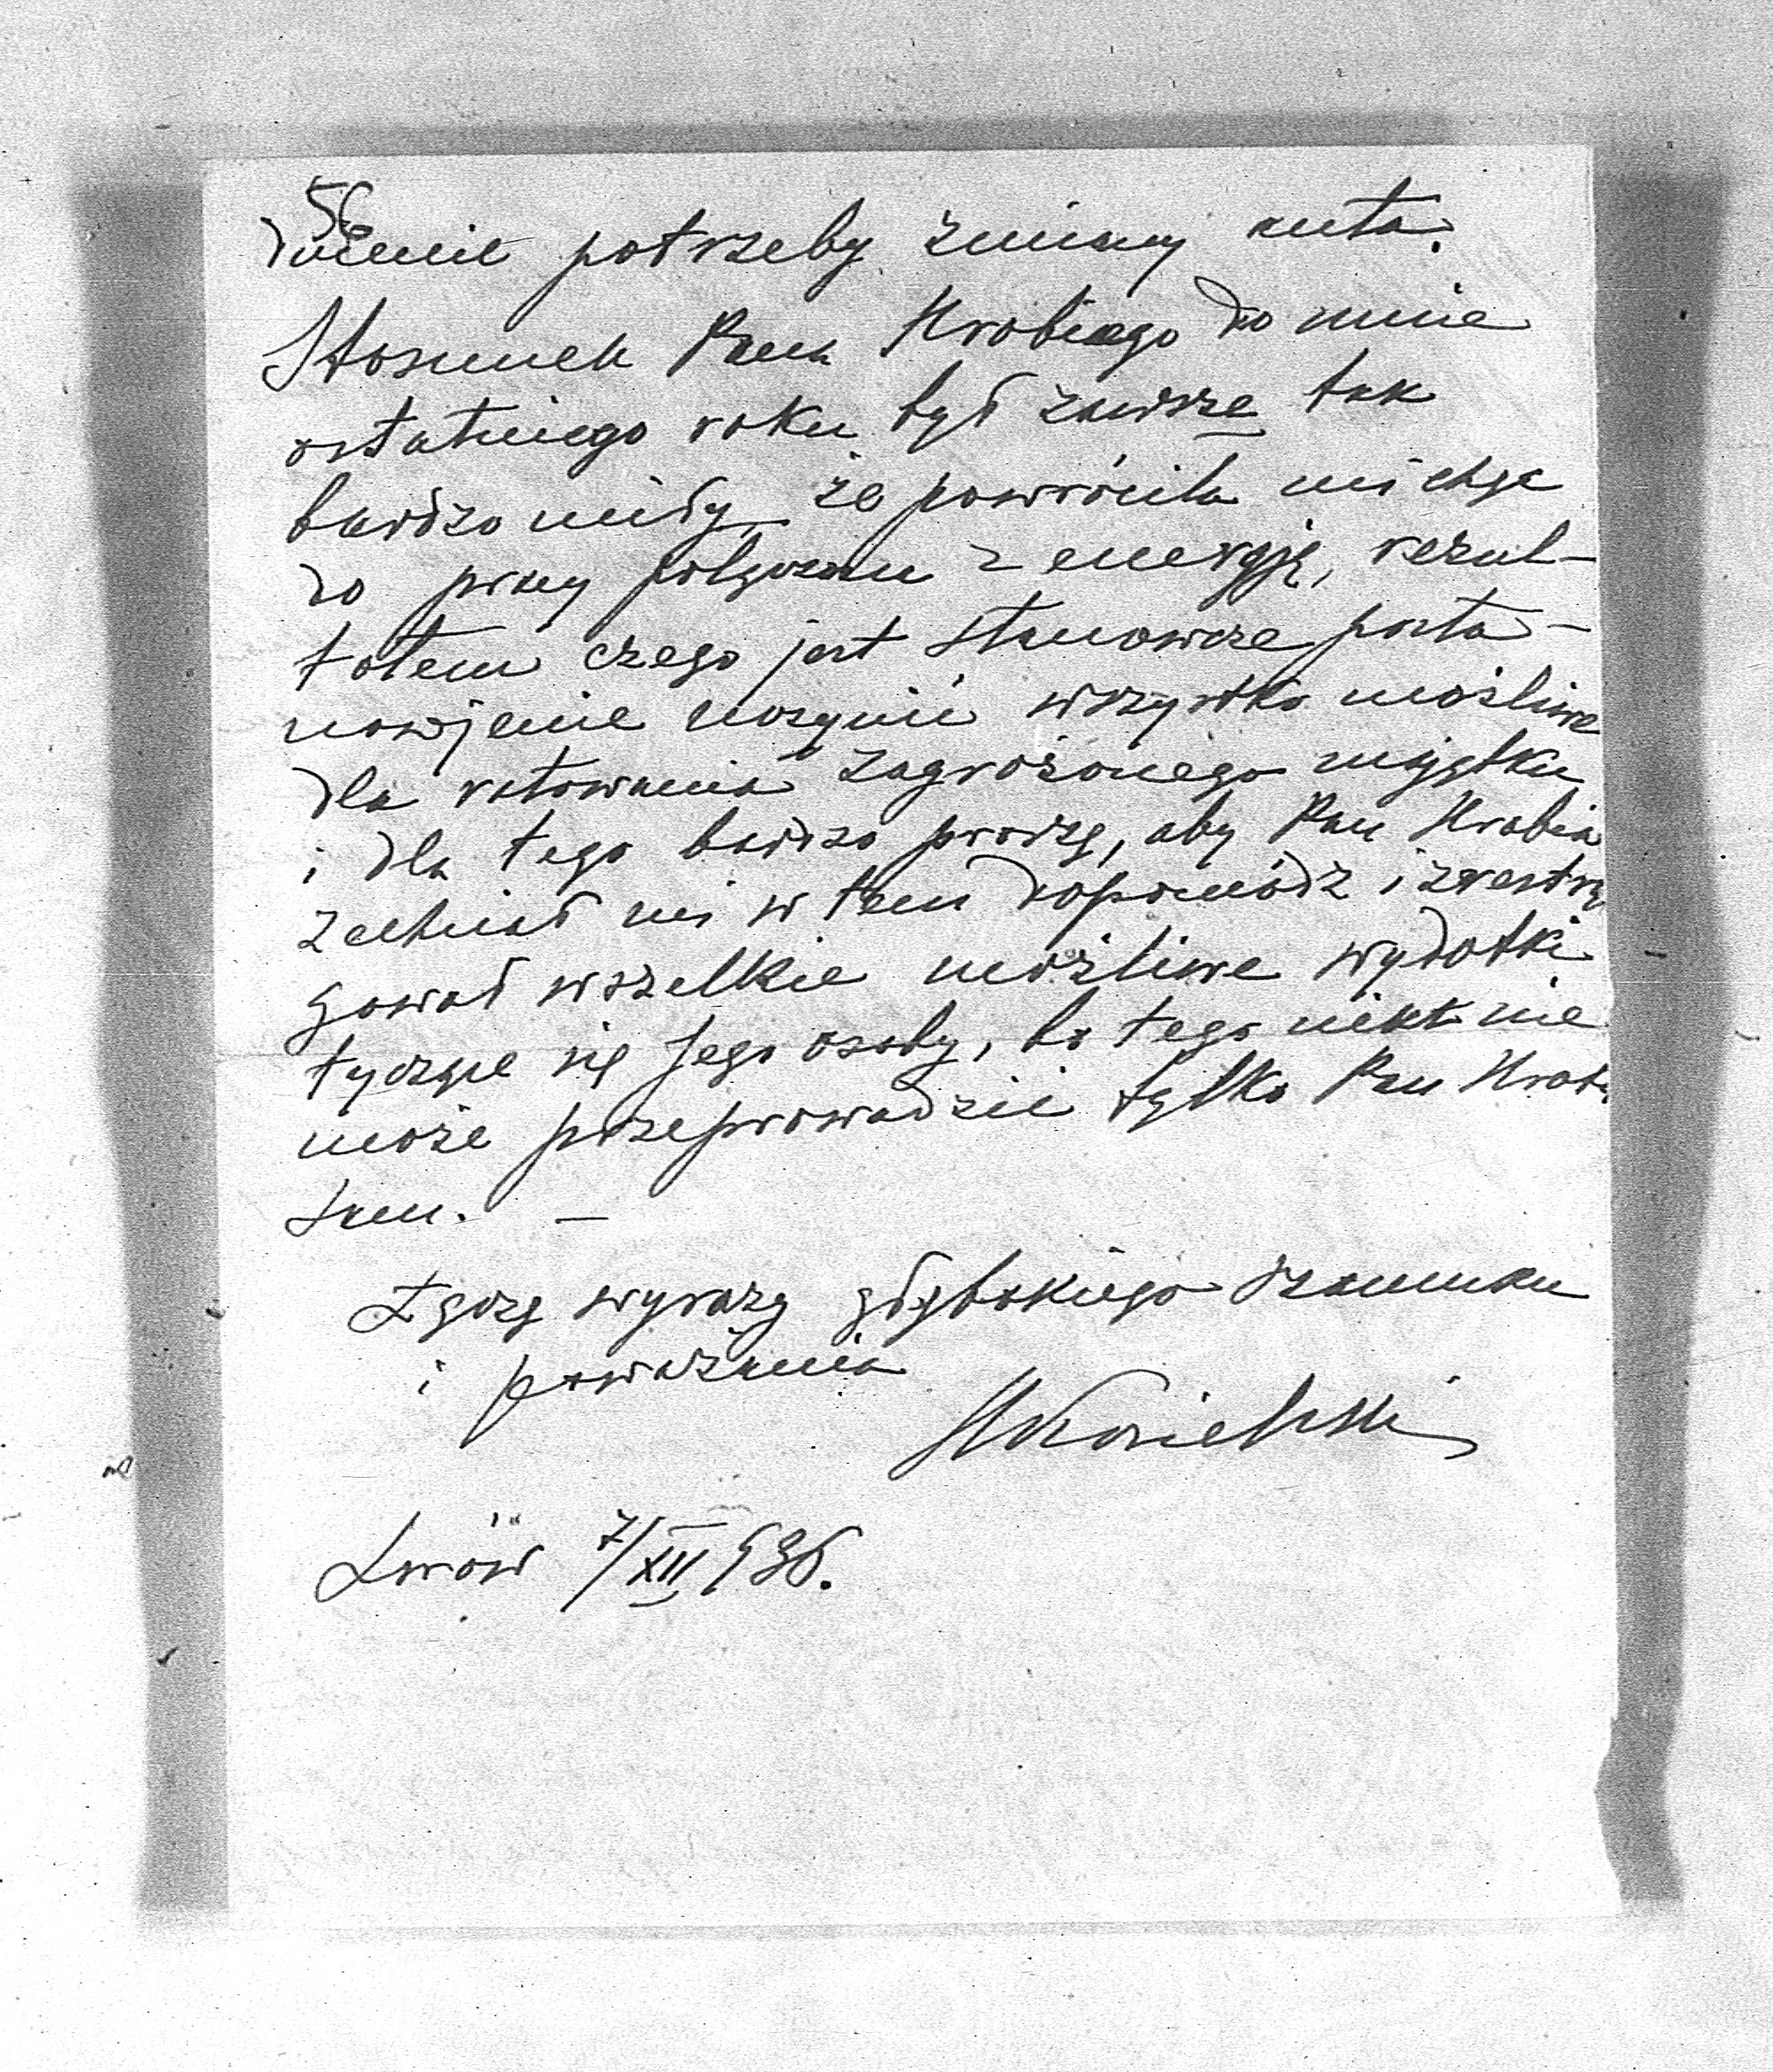 56
potrzeby zmiany auta.
Stosunek Pana Hrabiego do mnie
ostatniego roku był zawsze tak
bardzo miły, że powróciła mi chęć
do pracy połączona z energją, rezul-
tatem czego jest stanowcze posta-
nowienie uczynić wszystko możliwe
dla ratowania zagrożonego majątku
i dla tego bardzo proszę, aby Pan Hrabia
zechciał mi w tem dopomódz i zrestryn
gował wszelkie możliwe wydatki
tyczące się Jego osoby, bo tego nikt nie
może przeprowadzić tylko Pan Hrabia
sam. —
Łączę wyrazy głębokiego szacunku
i poważania
Lwów 7/XII 1936.